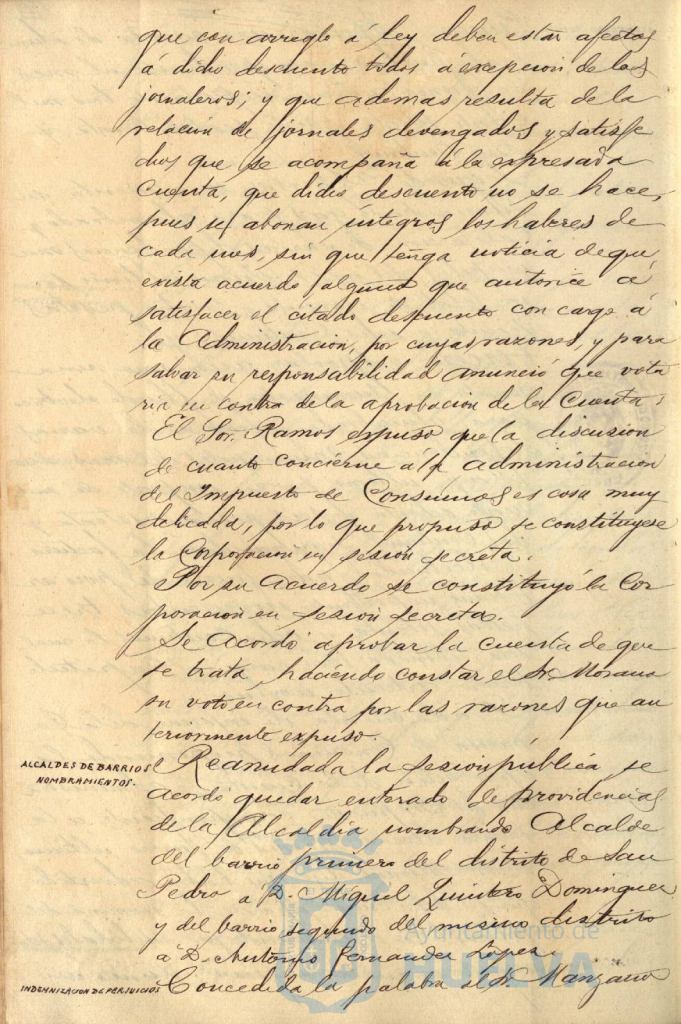 que con arreglo á ley deben estar afectos
á dicho descuento todos á excepcion de los
jornaleros; y que ademas resulta de la
relación de jornales devengados y satisfe
chos que se acompaña á la expresada
Cuenta, que dicho descuento no se hace,
pues se abonan integros los haberes de
cada mes, sin que tenga noticia de que
exista acuerdo alguno que autorice á
satisfacer el citado descuento con cargo á
la Administración, por cuyas razones, y para
salvar su responsabilidad anunció que vota
ria en contra de la aprobación de la Cuenta.
El Sor. Ramos expuso que la discusion
de cuanto concierne á la administración
del Impuesto de Consumos es cosa muy
delicada, por lo que propuso se constituyese
la Corporación en sesión secreta.
Por su acuerdo se constituyó la Cor
poración en sesion secreta.
Se acordó aprobar la cuenta de que
se trata, haciendo constar el Sr. Morano
su voto en contra por las razones que an
teriormente expuso.
ALCALDES DE BARRIOS
NOMBRAMIENTOS.
Reanudada la sesion pública se
acordó quedar enterado de providencias
de la Alcaldia nombrando Alcalde
del barrio primero del distrito de San
Pedro á D. Miguel Quintero Dominguez
y del barrio segundo del mismo distrito
á D. Antonio Fernandez López.
Ayuntamiento de
HUELVA
INDEMNIZACION DE PERJUICIOS
Concedida la palabra al Sr. Manzano